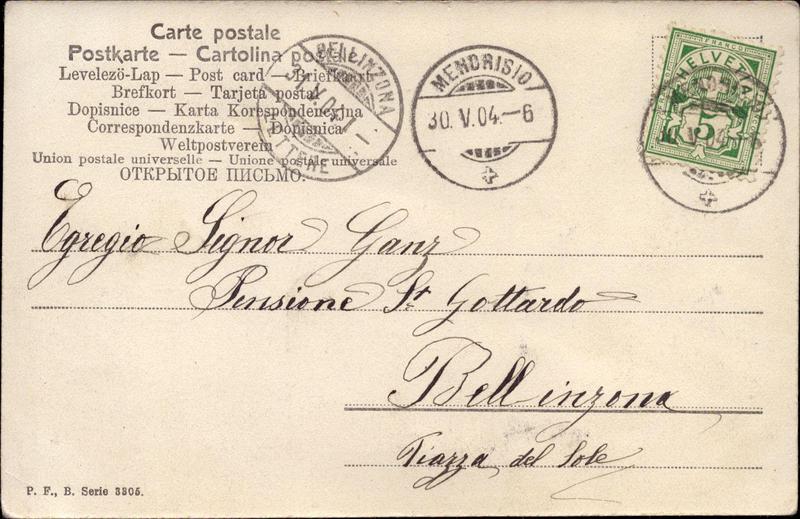 Carte postale
Postkarte — Cartolina postale
Levelezö-Lap — Post card — Briefkaart
Brefkort — Tarjeta postal
Dopisnice — Karta Korespondencyjna
Correspondenzkarte — Dopisnica
Weltpostverein
Union postale universelle — Unione postale universale
ОТКРЫТОЕ ПИСЬМО.
BELLINZONA
LETTERE
MENDRISIO
30. V. 04. — 6
FRANCO
HELVETIA
5
Egregio Signor Ganz
Pensione St Gottardo
Bellinzona
Piazza del Sole
P. F., B. Serie 3305.